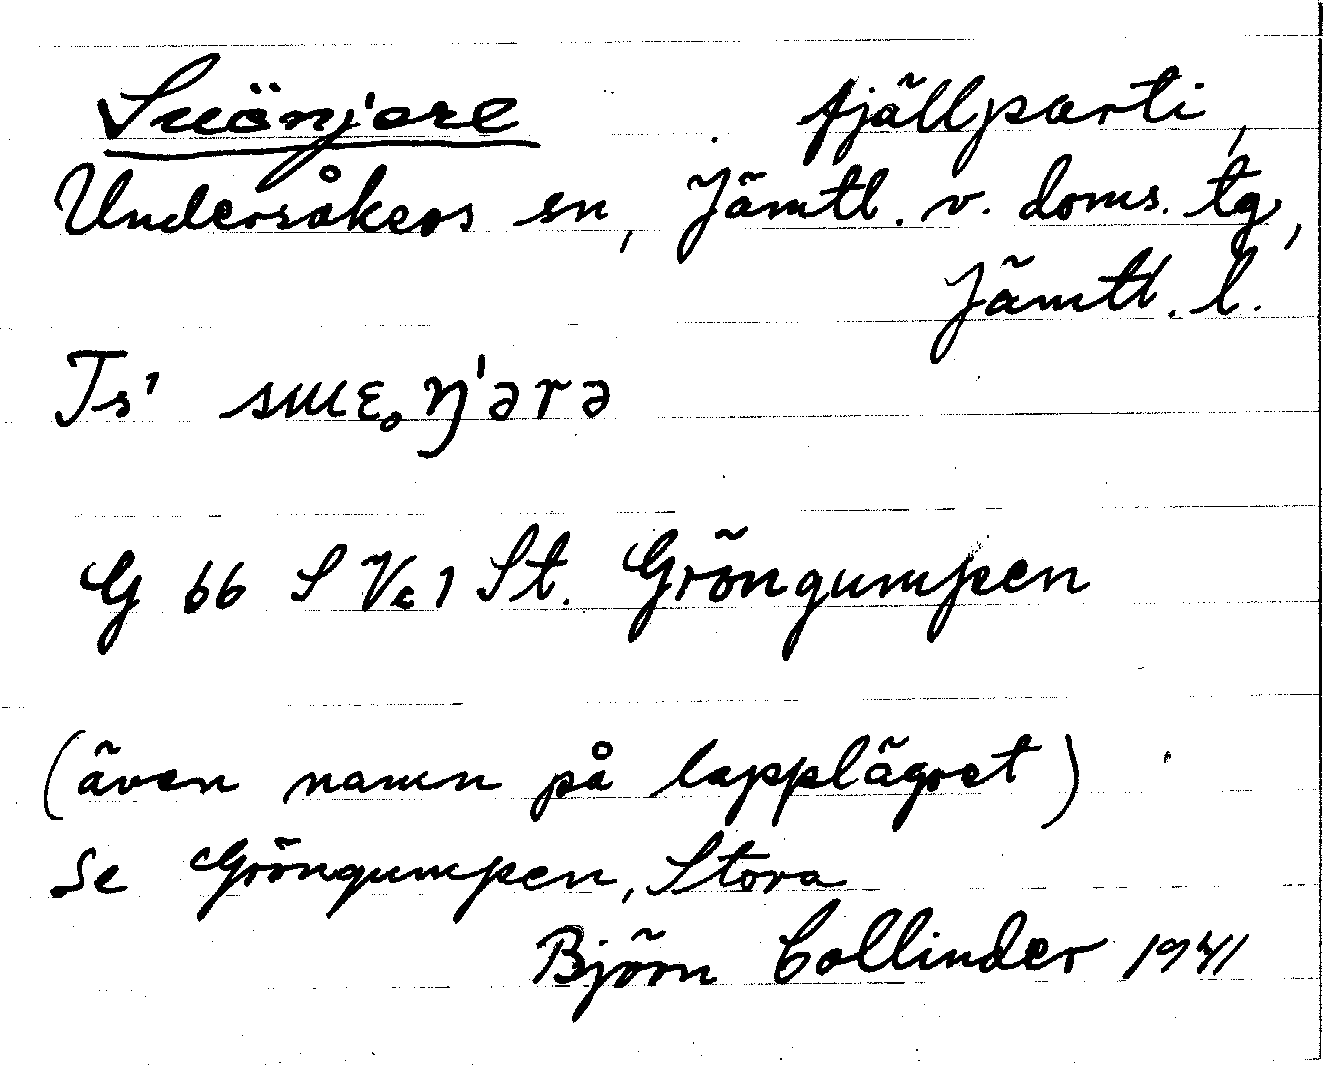 Suönj'are fjällparti,
Undersåkers sn, Jämtl. v. doms. tg,
Jämtl. l.
Ts'
G 66 S V c 1 St. Gröngumpen
(även namn på lapplägret)
Se Gröngumpen, Stora
Björn Collinder 1941